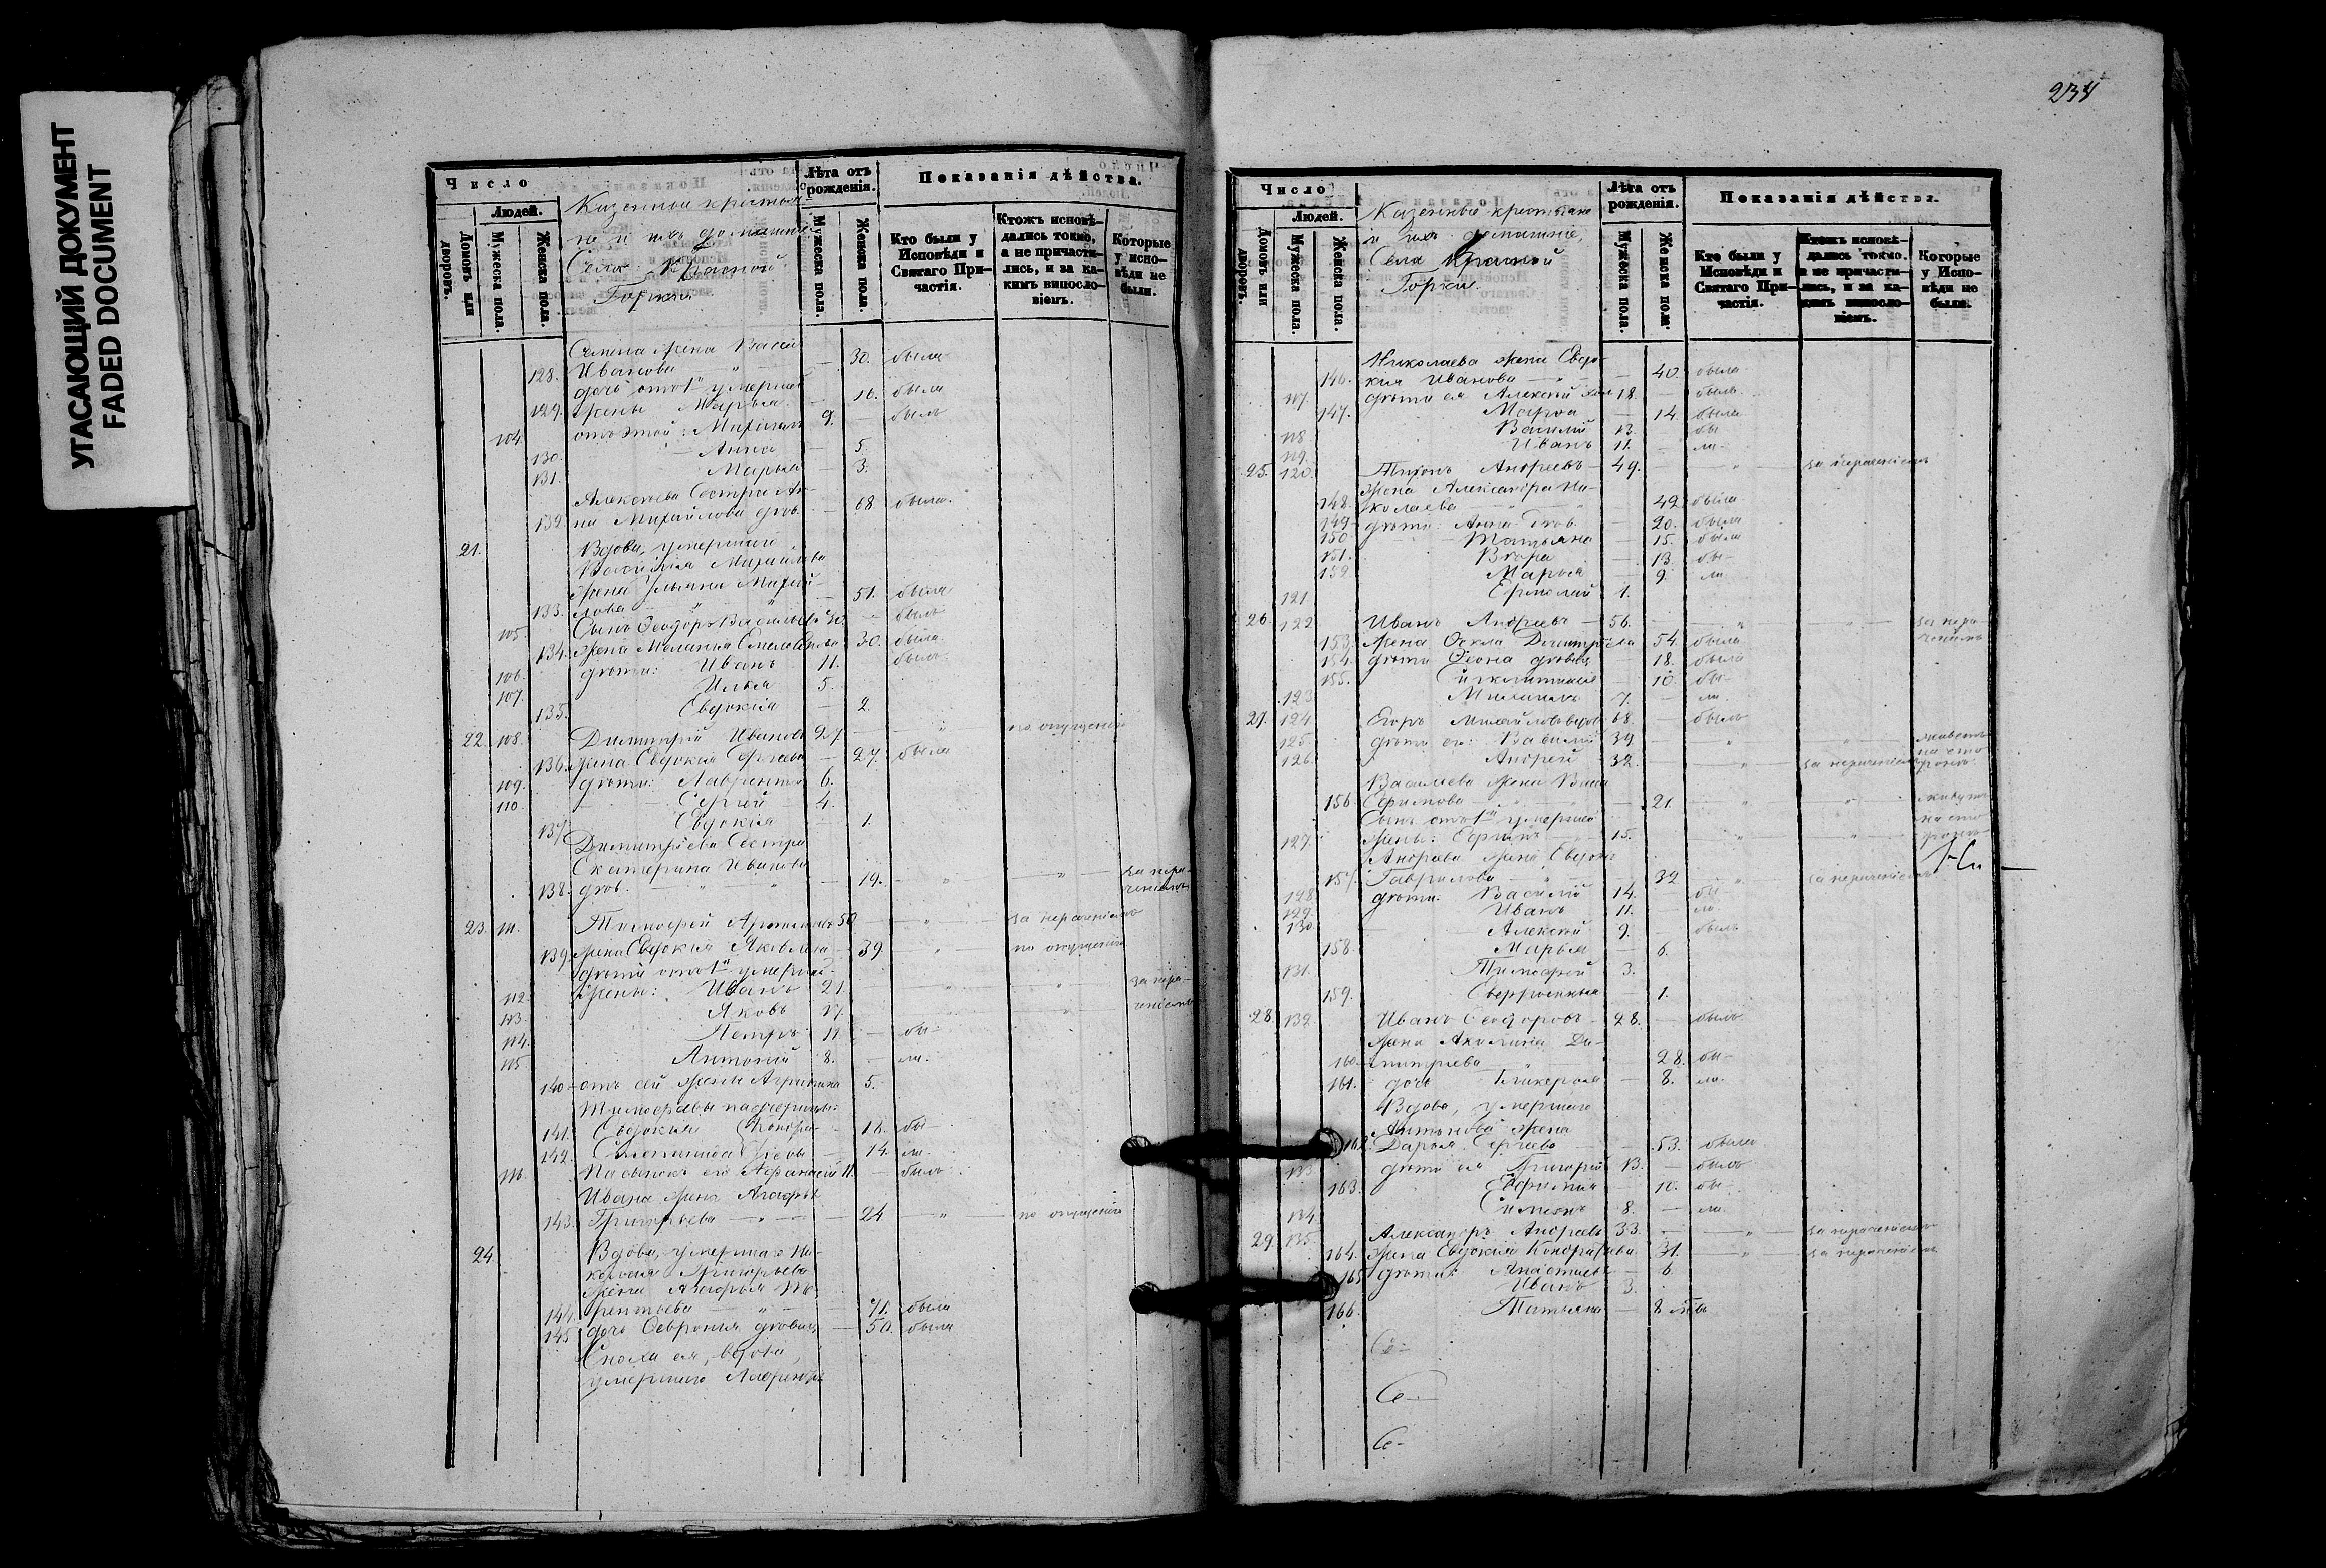 УГАСАЮЩИЙ ДОКУМЕНТ
FADED DOCUMENT
Число
Людей.
Домовъ или дворовъ.
Мужеска пола.
Женска пола.
Казенные крестья-
не и ихъ домашние
Села Красной
Горки.
Лѣта отъ рожденія.
Мужеска пола.
Женска пола.
Показанія дѣйства.
Кто были у Исповѣди и Святаго При-частія.
Ктожъ исповѣ-дались токмо, а не причасти-лись, и за ка-кимъ винослo-віемъ.
Которые у испо-вѣди не были.
Семена жена Васи
128. Иванова — 30. была
дочь отъ 1й умершей
129. жены Марья — 16. была
104. отъ этой: Михаилъ 9. — былъ
130. Анна — 5.
131. Марья — 3.
Алексѣева Сестра Ан-
132. на Михайлова дѣв. — 68 была.
21. Вдова, умершаго
Василія Михайлова
жена Ульяна Михай-
133. лова — 51. была
105. Сынъ Ѳеодоръ Васильевъ — былъ
134. жена Меланья Емельянова 30. была.
106. дѣти: Иванъ 11. былъ.
107. Илья 5.
135. Евдокія — 2.
22. 108. Димитрій Ивановъ 27. — " — по опущенію
136. жена Евдокия Сергѣева — 27. была
109. дѣти: Лаврентій 6.
110. Сергѣй 4.
137. Евдокія — 1.
Димитріева Сестра
Екатерина Иванова
138. дѣв. — 19. — " — " — за нера-
ченіемъ
23. 111. Тимоѳей Артемьевъ 50 — " — за нераченіемъ
139. жена Евдокия Яковлева — 39. — " — по опущенію
дѣти отъ 1й умершей
112. жены: Иванъ 21. — " — " — за нера-
113. Яковъ 17. — " — ченіемъ
114. Петръ 11. — бы-
115. Антоній 8. — ли.
140. отъ сей жены Агрипина 5.
Тимоѳеевы падчерицы:
141. Евдокия — 16. бы-
142. Степанида — 14. ли.
116. Пасынокъ его Афанасій 11. — былъ
Ивана жена Агаѳья
143. Григорьева — " — 24 — " — по опущенію
24. Вдова, умершаго Ни-
колая Григорьева
жена Агаѳья Те-
144. рентьева — " — 71. была
145. дочь Ѳевронія дѣвица — 50. была
Сноха ея, вдова,
умершаго
234
Число
Людей.
Домовъ или дворовъ.
Мужеска пола.
Женска пола.
Казенные крестьяне
и ихъ домашніе,
Села Красной
Горки.
Лѣта отъ рожденія.
Мужеска пола.
Женска пола.
Показанія дѣйства.
Кто были у Исповѣди и Святаго При-частія.
Ктожъ исповѣ-дались токмо, а не причасти-лись, и за ка-кимъ винослo-віемъ.
Которые у Испо-вѣди не были.
Николаева жена Евдо-
146. кия Иванова — 40. была
117. дѣти ея Алексѣй 18. — былъ.
147. Марѳа — 14. была
118. Василій 13. бы
119. Иванъ 11. — ли.
25. 120. Тихонъ Андреевъ — 49. — " — за нераченіемъ
жена Александра Ни-
148. колаева — 49 была
149. дѣти: Анна дѣв. — 20. была
150 Татьяна — 15. была
151. Вѣра — 13. бы-
152. Марья — 9. ли
121. Ермолай 1.
26. 122 Иванъ Андреевъ — 56. — " — " — за нера-
ченіемъ
153. жена Ѳекла Димитріева 54. была
154. дѣти Ѳеона дѣвица — 18. была
155. — 10. бы-
123. Михаилъ 7. — ли.
27. 124. Егоръ Михайловъ вдовъ 68. — былъ
125. дѣти его: Василій 39. — " — " — живетъ
на сто
126. Андрей 32. — " — за нераченіемъ ронѣ.
Васильева жена Васи
156. Ефимова — " — 21. — " — " — живутъ
Сынъ отъ 1й умершей на сто
127. жены: Ефимъ — 15. — " — " — ронѣ
Андреева жена Евдокия
157. Гаврилова — " — 32. — " — за нераченіемъ
128 дѣти: Василій 14. — бы-
129. Иванъ 11. — ли
130. Алексѣй 9. — былъ
158. Марья — 6.
131. Тимоѳей 3.
159. — 1.
28. 132. Иванъ Ѳеодоровъ — 28. — былъ
жена Акилина Ди-
160. митріева — " — 28. бы-
161. дочь Гликерія — 8. ли.
Вдова, умершаго
Антонова жена
162. Дарья Сергѣева — 53. была
133. дѣти ея Григорій 13. — былъ
163. Евфимия — 10. бы-
134. Симеонъ 8. — ли
29. 135. Александръ Андреевъ 33. — " — за нераченіемъ
164. жена Евдокия Кондратьева 31. — " — за нераченіемъ
165. дѣти: Анастасія — 6.
Иванъ 3.
166. Татьяна — 8 мѣс